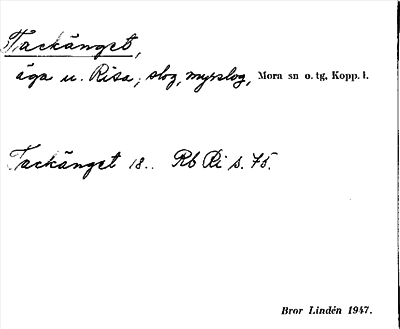 Tackänget,
äga u. Risa; slog, myrslog, Mora sn o. tg, Kopp. l.
Tackänget 18.. Rb Ri s. 75.
Bror Lindén 1947.